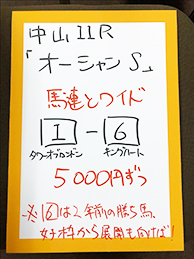 中山11R
「オーシャンS」
馬連とワイド
1-6
タワーオブロンドン キングハート
5000円ずつ
※6は2年前の勝ち馬、
好枠から展開も向けば!